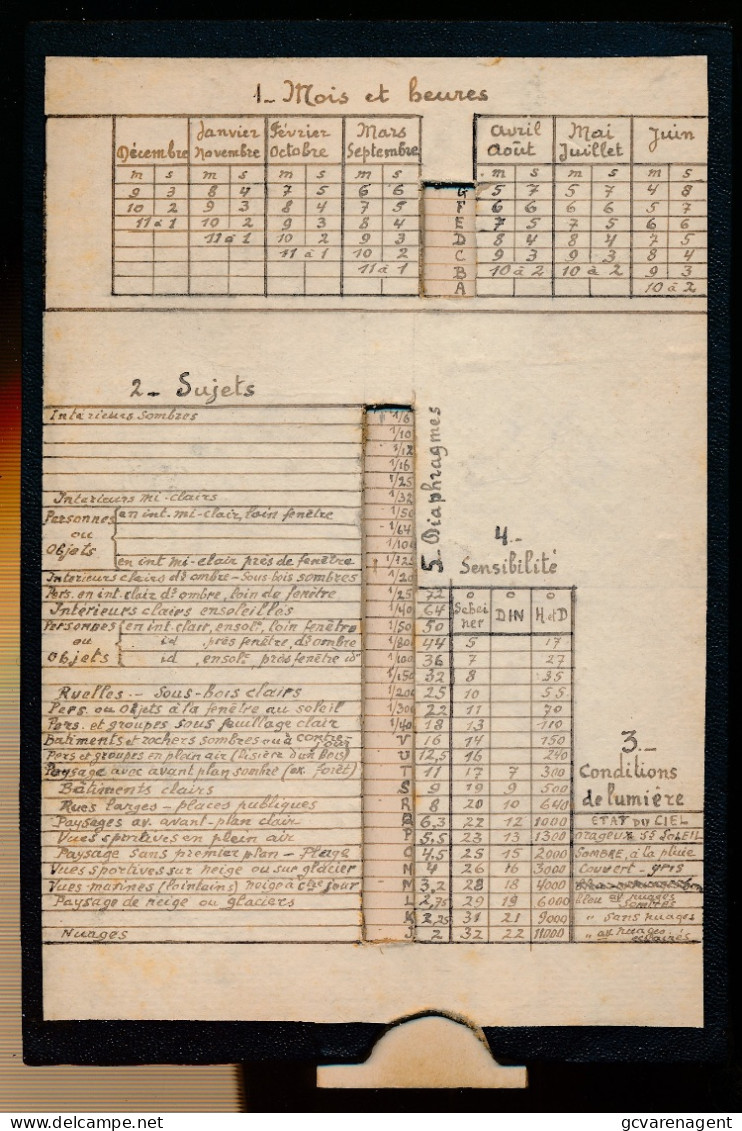 1_ Mois et heures
Décembre | Janvier Novembre | Février Octobre | Mars Septembre | | Avril Août | Mai Juillet | Juin
m s | m s | m s | m s | | m s | m s | m s
9 3 | 8 4 | 7 5 | 6 6 | G | 5 7 | 5 7 | 4 8
10 2 | 9 3 | 8 4 | 7 5 | F | 6 6 | 6 6 | 5 7
11 à 1 | 10 2 | 9 3 | 8 4 | E | 7 5 | 7 5 | 6 6
11 à 1 | 10 2 | 9 3 | D | 8 4 | 8 4 | 7 5
11 à 1 | 10 2 | C | 9 3 | 9 3 | 8 4
11 à 1 | B | 10 à 2 | 10 à 2 | 9 3
A | 10 à 2
2_ Sujets
Intérieurs sombres 1/6
1/10
1/12
1/16
1/25
Interieurs mi-clairs 1/32
Personnes ou Objets
en int. mi-clair, loin fenêtre 1/50
1/64
1/100
en int mi-clair près de fenêtre 1/125
Interieurs clairs ds ombre - Sous-bois sombres 1/20
Pers. en int. clair ds ombre, loin de fenêtre 1/25
Intérieurs clairs ensoleillés 1/40
Personnes ou Objets
en int-clair, ensolt, loin fenêtre 1/50
id , près fenêtre, ds ombre 1/80
id , ensolt, près fenêtre id° 1/100
1/150
Ruelles -- Sous-bois clairs 1/200
Pers. ou objets à la fenêtre au soleil 1/300
Pers. et groupes sous feuillage clair 1/40
Batiments et rochers sombres ou à contre-jour V
Pers et groupes en plein air (lisière d'un bois) U
Paysage avec avant plan sombre (ex. forêt) T
Bâtiments clairs S
Rues larges - places publiques R
Paysages av. avant-plan clair
Vues sportives en plein air P
Paysage sans premier plan - Plage O
Vues sportives sur neige ou sur glacier N
Vues marines (lointains) neige à ctre jour M
Paysage de neige ou glaciers L
K
Nuages J
5_ Diaphragmes
4_ Sensibilité
72 | ° | ° | °
64 | Scheiner | DIN | H et D
50
44 | 5 | | 17
36 | 7 | | 27
32 | 8 | | 35
25 | 10 | | 55
22 | 11 | | 70
18 | 13 | | 110
16 | 14 | | 150
12,5 | 16 | | 240
11 | 17 | 7 | 300
9 | 19 | 9 | 500
8 | 20 | 10 | 640
6.3 | 22 | 12 | 1000
5,5 | 23 | 13 | 1300
4,5 | 25 | 15 | 2000
4 | 26 | 16 | 3000
3,2 | 28 | 18 | 4000
2,75 | 29 | 19 | 6000
2,25 | 31 | 21 | 9000
2 | 32 | 22 | 11000
3._ Conditions de lumière
ETAT DU CIEL
orageux ss SOLEIL
SOMBRE, à la pluie
Couvert - gris
bleu av nuages sombres
" sans nuages
" av nuages éclairés
gcvarenagent